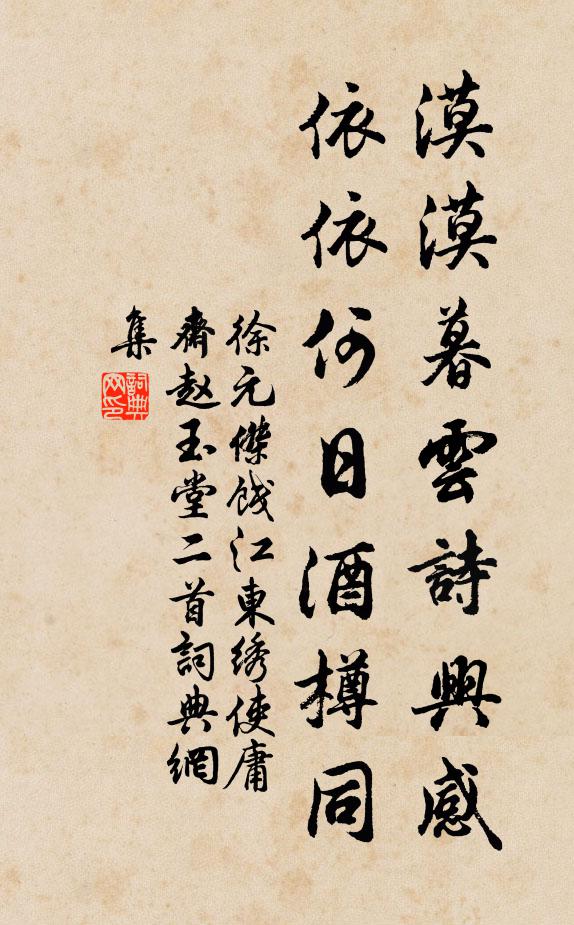 漠漠暮雲詩興感
依依何日酒樽同
徐元傑餞江東绣使庸
齋赵玉堂二首詞典網
集
詞典网印